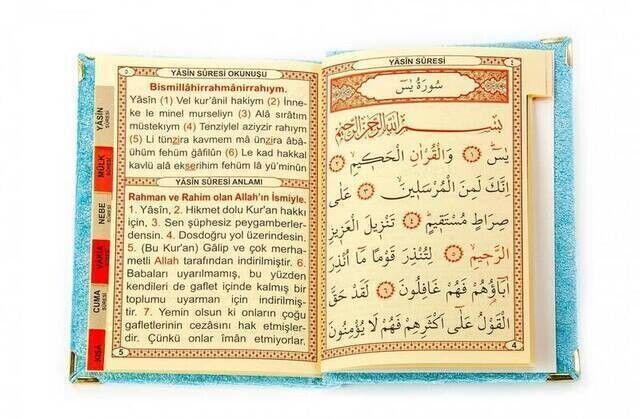 ٥ YÂSÎN SÛRESİ OKUNUŞU
Bismillâhirrahmânirrahıym.
Yâsîn (1) Vel kur'ânil hakiym (2) İnne-
ke le minel murseliyn. (3) Alâ sırâtım
müstekıym (4) Tenziylel aziyzir rahıym
(5) Li tünzira kavmem mâ ünzira âbâ-
ühüm fehüm ğâfilûn (6) Le kad hakkal
kavlü alâ ekserihim fehüm lâ yü'minûn
YÂSÎN SÛRESİ ANLAMI
Rahman ve Rahim olan Allah'ın İsmiyle.
1. Yâsîn, 2. Hikmet dolu Kur'an hakkı
için, 3. Sen şüphesiz peygamberler-
densin. 4. Dosdoğru yol üzerindesin.
5. (Bu Kur'an) Gâlip ve çok merha-
metli Allah tarafından indirilmiştir. 6.
Babaları uyarılmamış, bu yüzden
kendileri de gaflet içinde kalmış bir
toplumu uyarman için indirilmiş-
tir. 7. Yemin olsun ki onların çoğu
gafletlerinin cezâsını hak etmişler-
dir. Çünkü onlar îmân etmiyorlar.
5
YÂSÎN SÛRESİ
MÜLK SÛRESİ
NEBE SÛRESİ
VAKIA SÛRESİ
CUMA SÛRESİ
KISA
YÂSÎN SÛRESİ ٤
سُورَةُ يٰسٓ
بِسْمِ اللّٰهِ الرَّحْمٰنِ الرَّحِيمِ
يٰسٓ ﴿١﴾ وَالْقُرْاٰنِ الْحَكِيمِ ﴿٢﴾
اِنَّكَ لَمِنَ الْمُرْسَلِينَ ﴿٣﴾ عَلٰى
صِرَاطٍ مُسْتَقِيمٍ ﴿٤﴾ تَنْزِيلَ الْعَزِيزِ
الرَّحِيمِ ﴿٥﴾ لِتُنْذِرَ قَوْمًا مَٓا اُنْذِرَ
اٰبَٓاؤُهُمْ فَهُمْ غَافِلُونَ ﴿٦﴾ لَقَدْ حَقَّ
الْقَوْلُ عَلٰٓى اَكْثَرِهِمْ فَهُمْ لَا يُؤْمِنُونَ
4